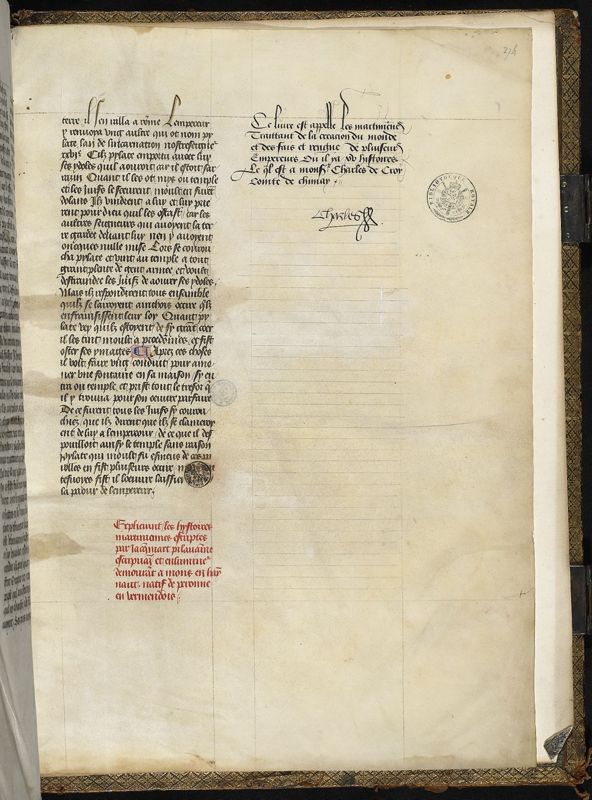 terre il sen ralla a rome Lempereur
y renvoya ung aultre qui ot nom py
late lan de lincarnation nostreseignr
xxvii Cilz pylate emporta avoec luy
ses ydoles quil aouroit car il estoit sar
razin Quant il les ot mys ou temple
et les Juifs le sceurent moult en furent
dolant Ilz vindrent a luy et luy prie
rent pour dieu quil les ostast car les
aultres seigneurs qui avoyent la ter
re gardee devant luy nen y avoyent
oncques nulle mise Lors se courou
cha pylate et vint au temple a tout
grant plente de gent armee et voult
destraindre les Juifs de aourer ses ydoles
Mais ilz respondirent tous ensamble
quilz se lairoyent ainchois occire quilz
enfrainsissent leur loy Quant py
late vey quilz estoyent de sy grant coer
il les tint moult a et fist
oster ses ymages Apres ces choses
il volt faire ung conduit pour ame
ner une fontaine en sa maison sy en
tra ou temple et prist tout le tresor quil
il y trouva pour son oeuvre parfaire
De ce furent tous les Juifs sy courou
chiez que ilz dirent que ilz se clameroy
ent de luy a lempereur de ce que il des
pouilloit ainsy le temple sans raison
pylate qui moult fu esmeus de ces
rolles en fist plusieurs occire
tesvoyes fist il loeuvre laissier
la paour de lempereur
Expliciunt les hystoires
martiniennes escriptes
par Jacquemart pilavaine
escripvain et enlumineur
demourant a mons en hay
nault natif de peronne
en vermendois
Ce livre est appelle Les martinienes
Traittant de la creation du monde
et des fais et rengne de pluseurs
Empereurs Ou il ya vii histoires
Le ql est a monsr Charles de Croy
Conte de chimay
Charles